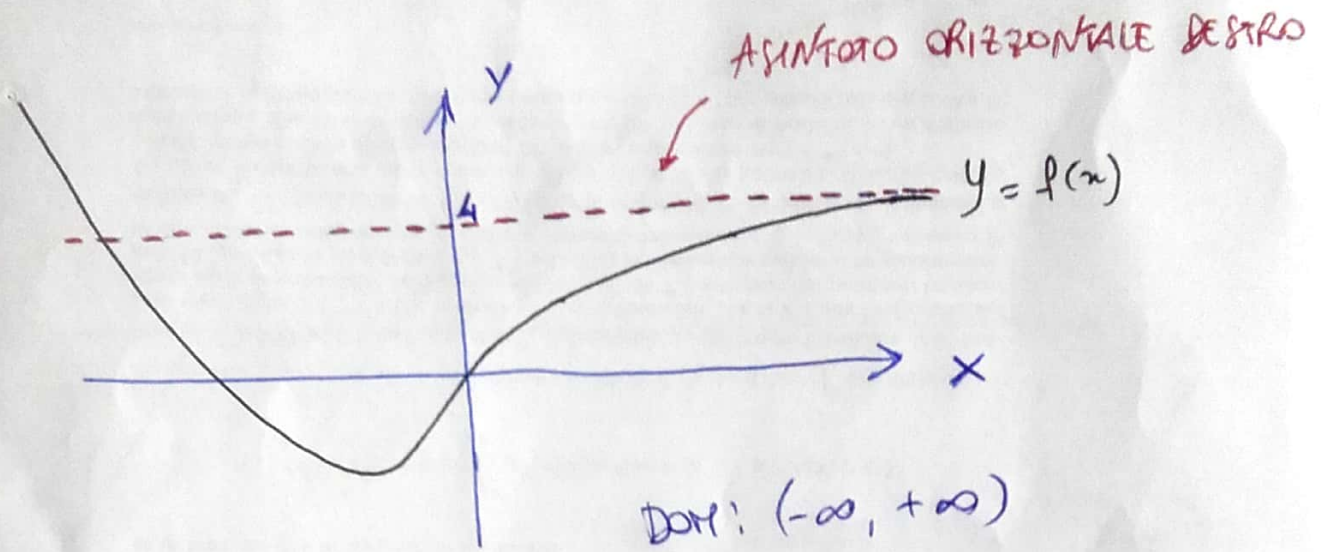 ASINTOTO ORIZZONTALE DESTRO
y
4
y = f(x)
x
DOM: (-∞, +∞)